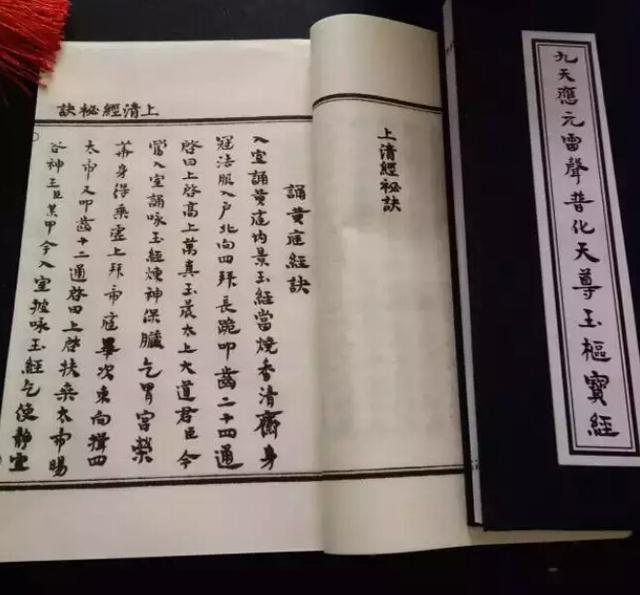 九天應元雷聲普化天尊玉樞寶經
上清經祕訣
上清經秘訣
誦黃庭經訣
入室誦黃庭內景玉經當燒香清齋身
冠法服入户北向四拜長跪叩齒二十四通
啓曰上啓高上萬真玉宸太上大道君臣今
當入室誦咏玉經煉神保臟乞胃宮榮
華身得乘虛上拜帝庭畢次東向揖四
太帝又叩齒十二通啓曰上啓扶桑太帝暘
谷神王臣某甲今入室披咏玉經乞使靜室